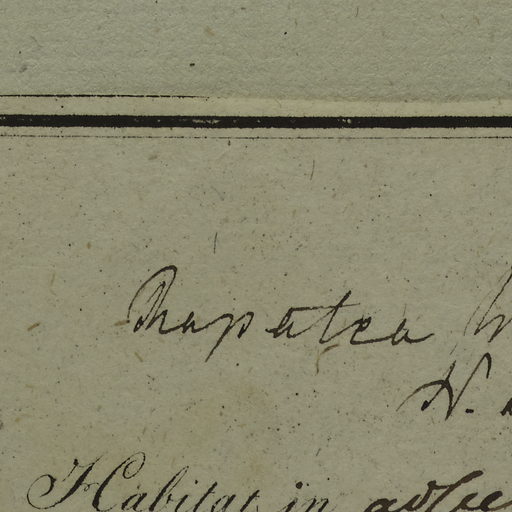 Rapatea
N.
Habitat in